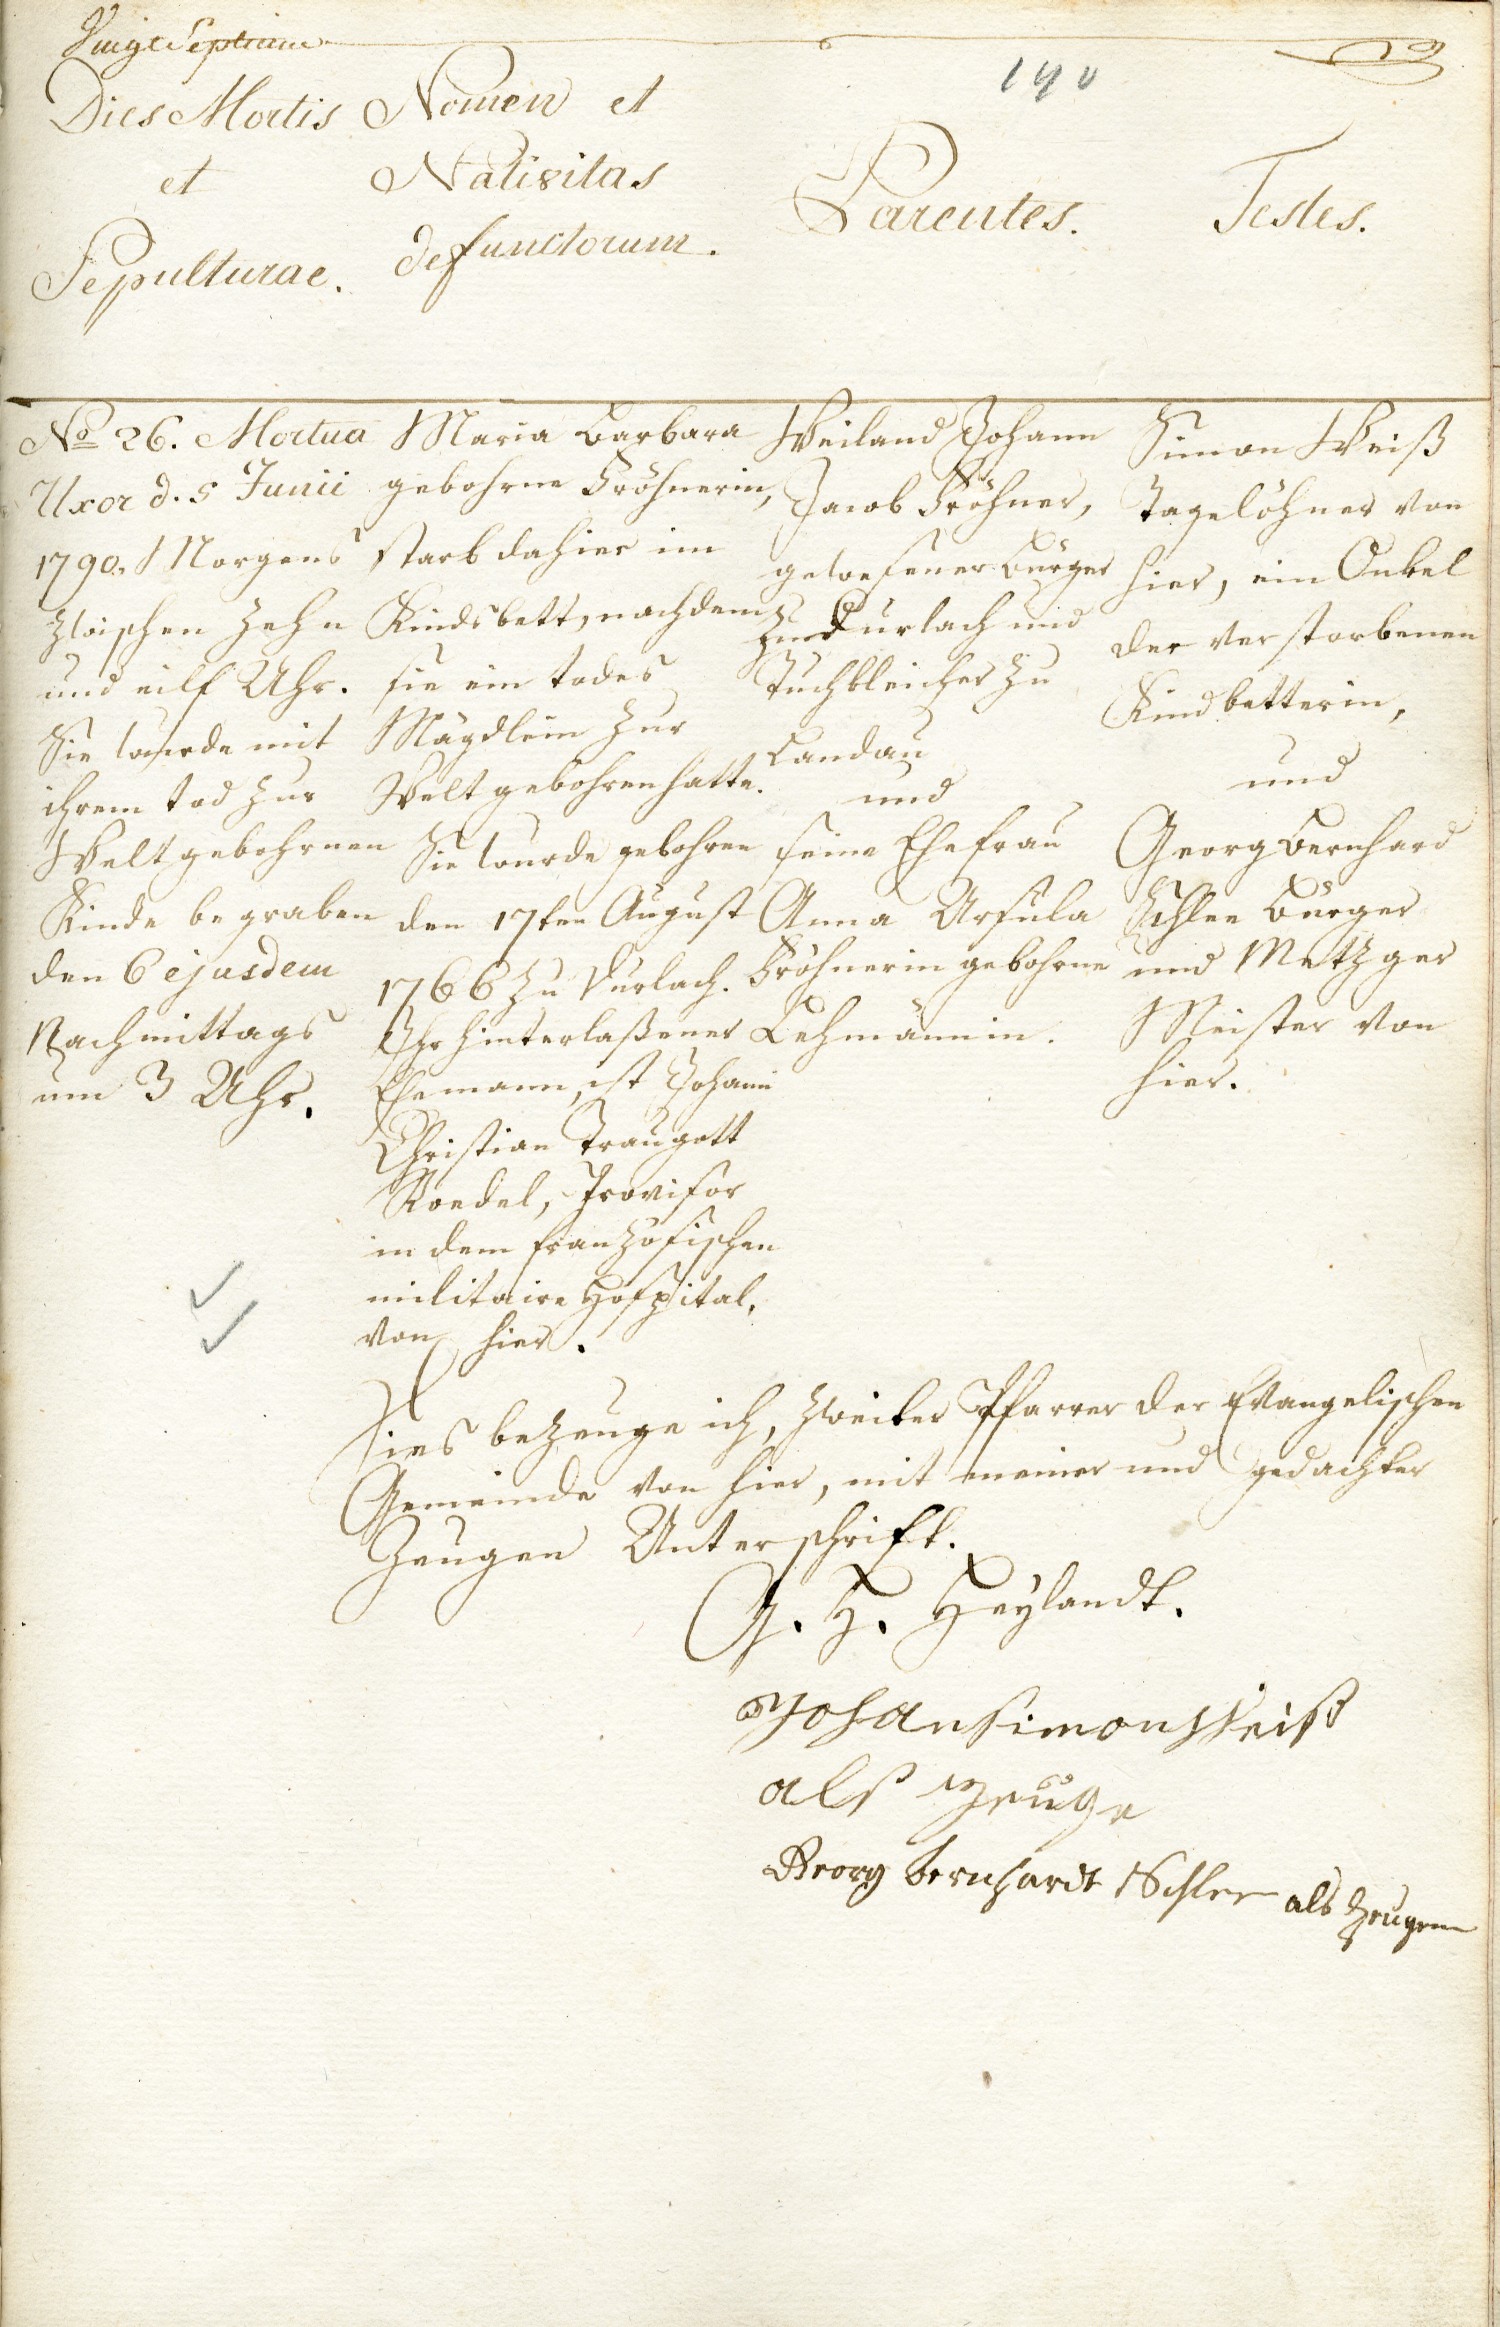 Vinge Septieme
190
Dies Mortis
et
Sepulturae.
Nomen et
Nativitas
defunctorum.
Parentes.
Testes.
No 26. Mortua
Uxor d. 5 Junii
1790. Morgens
zwischen zehn
und eilf Uhr.
Sie wurde mit
ihrem tod zur
Welt gebohrnen
Kinde begraben
den 6 ejusdem
Nachmittags
um 3 Uhr.
Maria Barbara
gebohrne Fröhnerin,
starb dahier im
Kindsbett, nachdem
sie ein todes
Mägdlein zur
Welt gebohren hatte.
Sie wurde gebohren
den 17ten August
1766 zu Durlach.
Ihr hinterlaßener
Ehemann, ist Johann
Christian Traugott
Roedel, Provisor
in dem französischen
militaire Hospital,
von hier.
Weiland Johann
Jacob Fröhner,
gewesener Bürger
zu Durlach und
Tuchbleicher zu
Landau
und
seine Ehefrau
Anna Ursula
Fröhnerin gebohrne
Lehmännin.
Simon Weiß
Tagelöhner von
hier, ein Onkel
der verstorbenen
Kindbetterin,
und
Georg Bernhard
Schlee Bürger
und Metzger
Meister von
hier.
Dies bezeuge ich, zweiter Pfarrer der Evangelischen
Gemeinde von hier, mit meiner und gedachter
Zeugen Unterschrift.
G. H. Heylandt.
Johan Simon Weiß
alß Zeuge
Georg Bernhardt Schlee als Zeugen